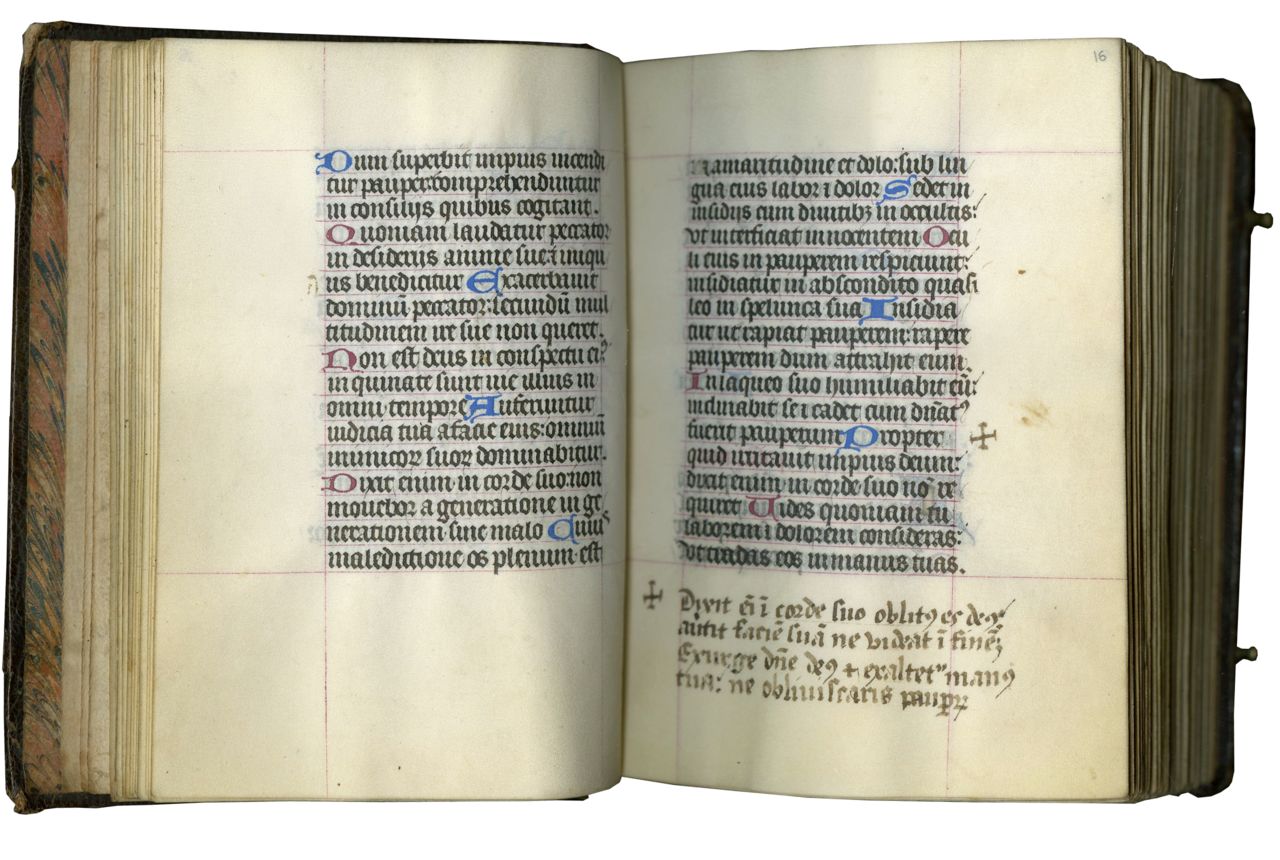 Dum superbit impius incendi
tur pauper: comprehenduntur
in consilijs quibus cogitant.
Quoniam laudatur peccator
in desiderijs anime sue: ⁊ iniqu
us benedicitur Exacerbauit
dominū peccator: secundū mul
titudinem ire sue non queret.
Non est deus in conspectu eiꝰ
inquinate sunt uie illius in
omni tempore Auferuntur
iudicia tua a facie eius: omniū
inimicoꝝ suoꝝ dominabitur.
Dixit enim in corde suo: non
mouebor a generatione in ge
nerationem sine malo Cuiuˢ
maledictione os plenum est
16
⁊ amaritudine et dolo: sub lin
gua eius labor ⁊ dolor Sedet in
insidijs cum diuitibꝫ in occultis:
vt interficiat innocentem Ocu
li eius in pauperem respiciunt:
insidiatur in abscondito quasi
leo in spelunca sua Insidia
tur ut rapiat pauperem: rapere
pauperem dum attrahit eum.
In laqueo suo humiliabit eū:
inclinabit se ⁊ cadet cum dn̄atꝰ
fuerit pauperum Propter
quid irritauit impius deum:
dixit enim in corde suo nō re
quiret Uides quoniam tu
laborem ⁊ dolorem consideras:
vt tradas eos in manus tuas.
Dixit ēi ī corde suo oblitꝰ es deꝰ
autit faciē suā ne videat ī finē:
Exurge dn̄e deꝰ ⁊ exaltet manꝰ
tua: ne obliuiscaris pauꝑꝝ